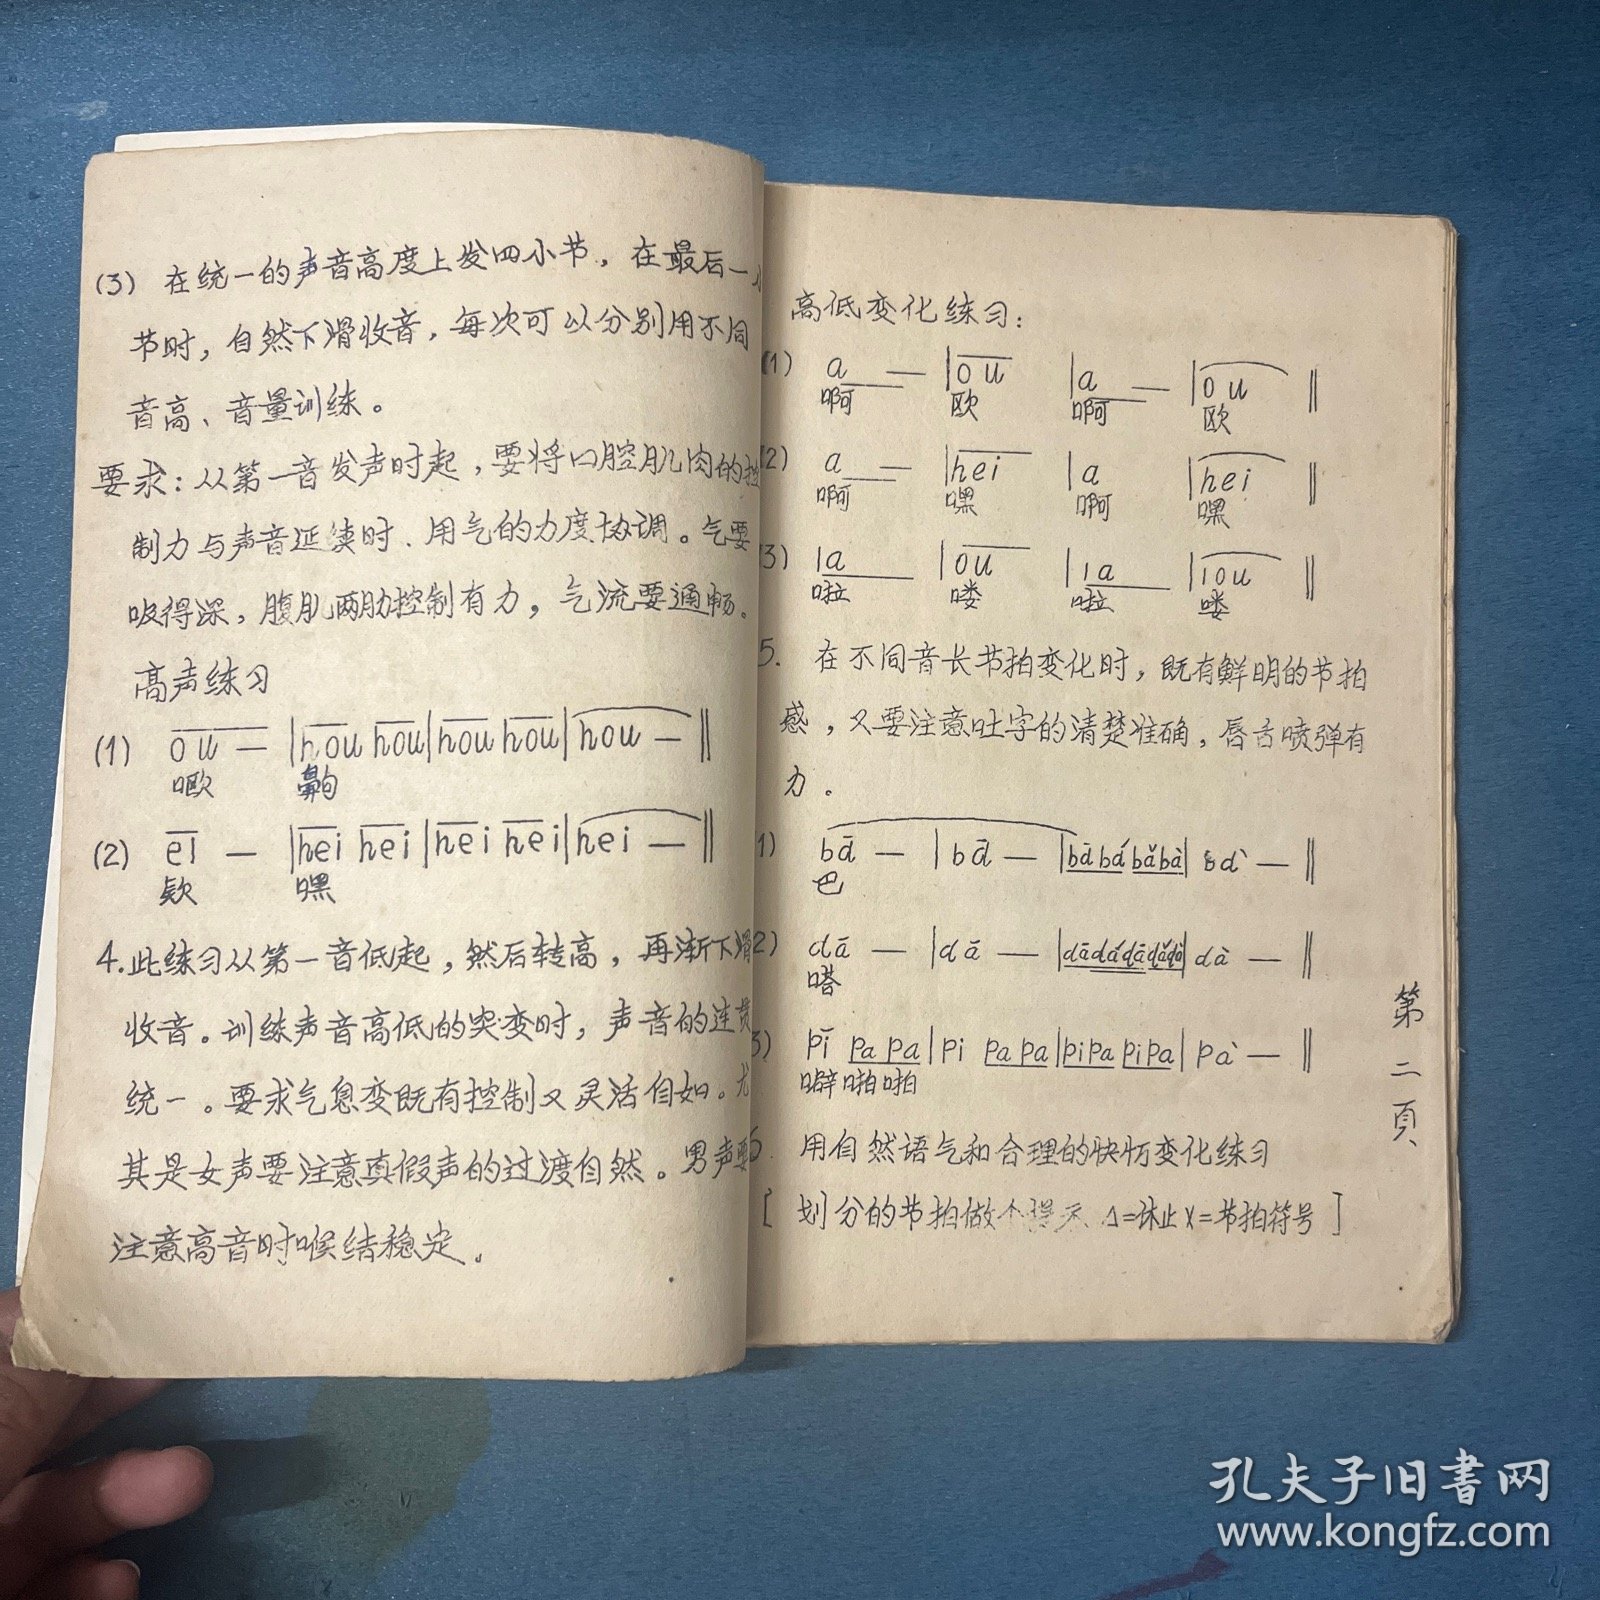 (3) 在统一的声音高度上发四小节，在最后一小
节时，自然下滑收音，每次可以分别用不同
音高、音量训练。
要求：从第一音发声时起，要将口腔肌肉的控
制力与声音延续时、用气的力度协调。气要
吸得深，腹肌两肋控制有力，气流要通畅。
高声练习
(1) ou — | hou hou | hou hou | hou — ‖
呕 齁
(2) ei — | hei hei | hei hei | hei — ‖
欸 嘿
4. 此练习从第一音低起，然后转高，再渐下滑
收音。训练声音高低的突变时，声音的连贯
统一。要求气息变既有控制又灵活自如。尤
其是女声要注意真假声的过渡自然。男声要
注意高音时喉结稳定。
高低变化练习：
(1) a — | ou | a — | ou ‖
啊 欧 啊 欧
(2) a — | hei | a | hei ‖
啊 嘿 啊 嘿
(3) la | lou | la | lou ‖
啦 喽 啦 喽
5. 在不同音长节拍变化时，既有鲜明的节拍
感，又要注意吐字的清楚准确，唇舌喷弹有
力。
1) bā — | bā — | bā bá bǎ bà | bà — ‖
巴
2) dā — | dā — | dā dá dā dǎ dà | dà — ‖
嗒
3) pī pa pa | pi pa pa | pi pa pi pa | pà — ‖
噼啪啪
6. 用自然语气和合理的快慢变化练习
[ 划分的节拍做个提示 △=休止 X=节拍符号 ]
第二頁
孔夫子旧书网
www.kongfz.com